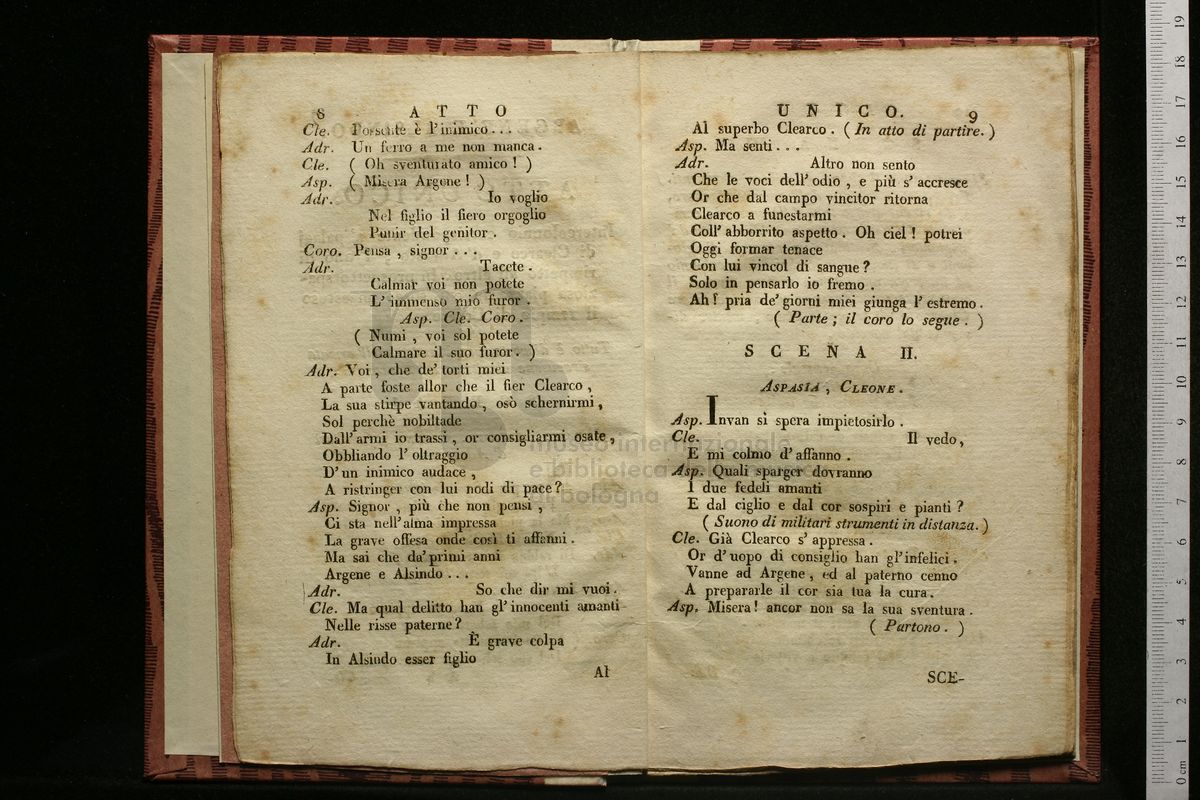 8 ATTO
Cle. Possente è l'inimico...
Adr. Un ferro a me non manca.
Cle. ( Oh sventurato amico! )
Asp. ( Misera Argene! )
Adr. Io voglio
Nel figlio il fiero orgoglio
Punir del genitor.
Coro. Pensa, signor...
Adr. Tacete.
Calmar voi non potete
L' immenso mio furor.
Asp. Cle. Coro.
( Numi, voi sol potete
Calmare il suo furor. )
Adr. Voi, che de' torti miei
A parte foste allor che il fier Clearco,
La sua stirpe vantando, osò schernirmi,
Sol perchè nobiltade
Dall'armi io trassi, or consigliarmi osate,
Obbliando l' oltraggio
D' un inimico audace,
A ristringer con lui nodi di pace?
Asp. Signor, più che non pensi,
Ci sta nell'alma impressa
La grave offesa onde così ti affanni.
Ma sai che da' primi anni
Argene e Alsindo...
Adr. So che dir mi vuoi.
Cle. Ma qual delitto han gl' innocenti amanti
Nelle risse paterne?
Adr. È grave colpa
In Alsindo esser figlio
Al
UNICO. 9
Al superbo Clearco. ( In atto di partire. )
Asp. Ma senti...
Adr. Altro non sento
Che le voci dell' odio, e più s' accresce
Or che dal campo vincitor ritorna
Clearco a funestarmi
Coll' abborrito aspetto. Oh ciel! potrei
Oggi formar tenace
Con lui vincol di sangue?
Solo in pensarlo io fremo.
Ah! pria de' giorni miei giunga l' estremo.
( Parte; il coro lo segue. )
SCENA II.
ASPASIA, CLEONE.
Asp. Invan si spera impietosirlo.
Cle. Il vedo,
E mi colmo d' affanno.
Asp. Quali sparger dovranno
I due fedeli amanti
E dal ciglio e dal cor sospiri e pianti?
( Suono di militari strumenti in distanza. )
Cle. Già Clearco s' appressa.
Or d' uopo di consiglio han gl' infelici.
Vanne ad Argene, ed al paterno cenno
A prepararle il cor sia tua la cura.
Asp. Misera! ancor non sa la sua sventura.
( Partono. )
SCE-
museo internazionale
e biblioteca della musica
di bologna
0 cm 1 2 3 4 5 6 7 8 9 10 11 12 13 14 15 16 17 18 19